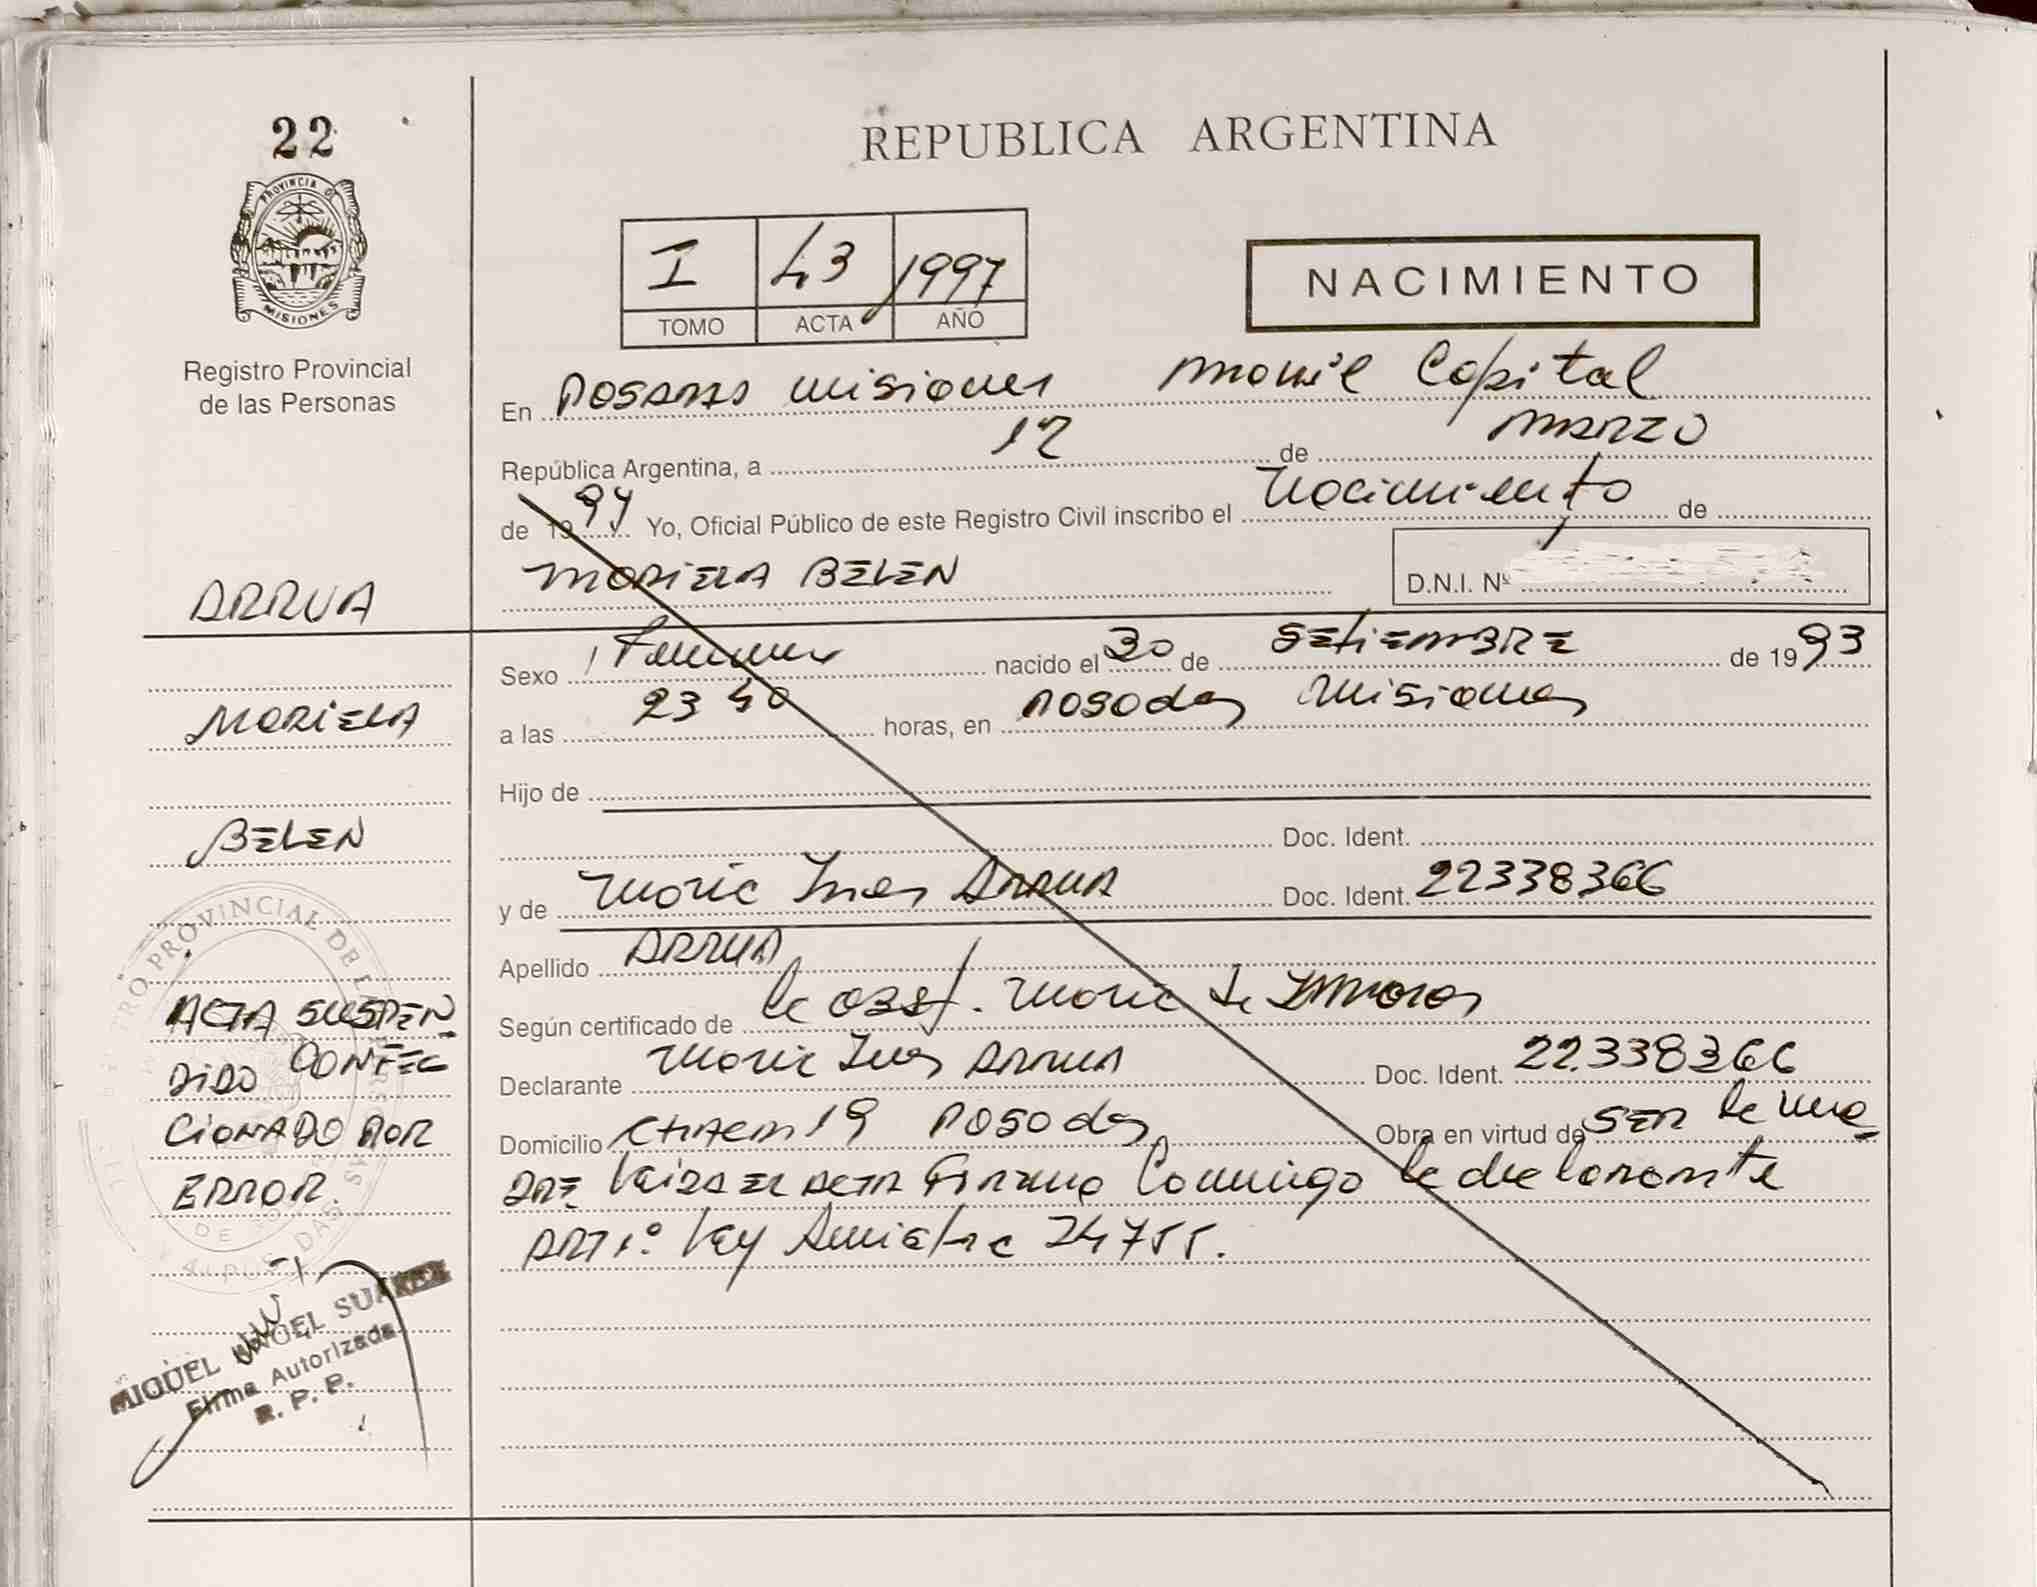 22
REPUBLICA ARGENTINA
PROVINCIA D
MISIONES
I 43 1997
TOMO ACTA AÑO
NACIMIENTO
Registro Provincial
de las Personas
En Posadas Misiones Movil Capital
República Argentina, a 12 de Marzo
de 1997 Yo, Oficial Público de este Registro Civil inscribo el Nacimiento de
MARIELA BELEN D.N.I. Nº
ARRUA
Sexo Femenino nacido el 30 de SETIEMBRE de 1993
a las 23 40 horas, en Posadas Misiones
MARIELA
Hijo de
BELEN
Doc. Ident.
y de Maria Ines ARRUA Doc. Ident. 22338366
Apellido ARRUA
Según certificado de la obst. Maria de
Declarante Maria Ines ARRUA Doc. Ident. 22.338366
Domicilio 19 Posadas Obra en virtud de SER la ma
DRE Leida el acta firma Conmigo la declarante
ART 1º Ley 24755.
ACTA SUSPEN
DIDO CONFEC
CIONADO POR
ERROR.
MIGUEL ANGEL SUAREZ
Firma Autorizada
R. P. P.